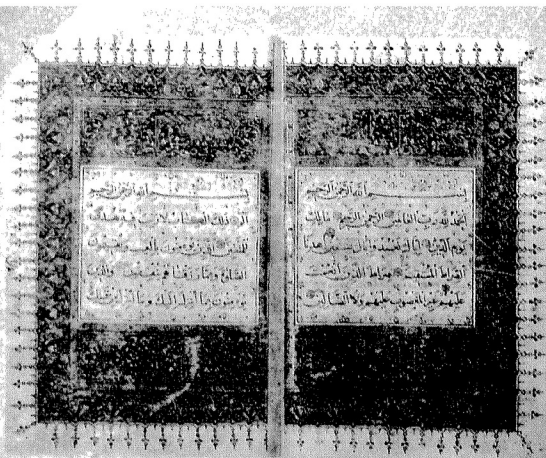 بسم الله الرحمن الرحيم
الحمد لله رب العالمين الرحمن الرحيم مالك
يوم الدين اياك نعبد واياك نستعين اهدنا
الصراط المستقيم صراط الذين انعمت
عليهم غير المغضوب عليهم ولا الضالين
بسم الله الرحمن الرحيم
الم ذلك الكتاب لا ريب فيه هدى
للمتقين الذين يؤمنون بالغيب ويقيمون
الصلوة ومما رزقناهم ينفقون والذين
يؤمنون بما انزل اليك وما انزل من قبلك